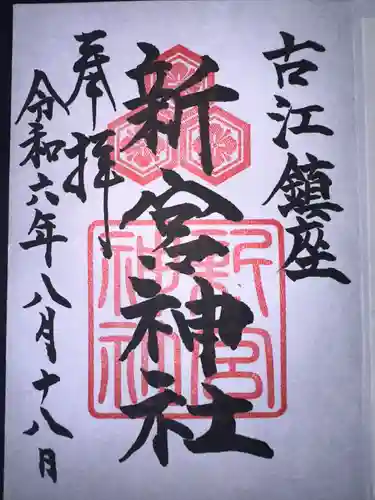 古江鎮座
新宮神社
奉拝
令和六年八月十八月
新宮
神社